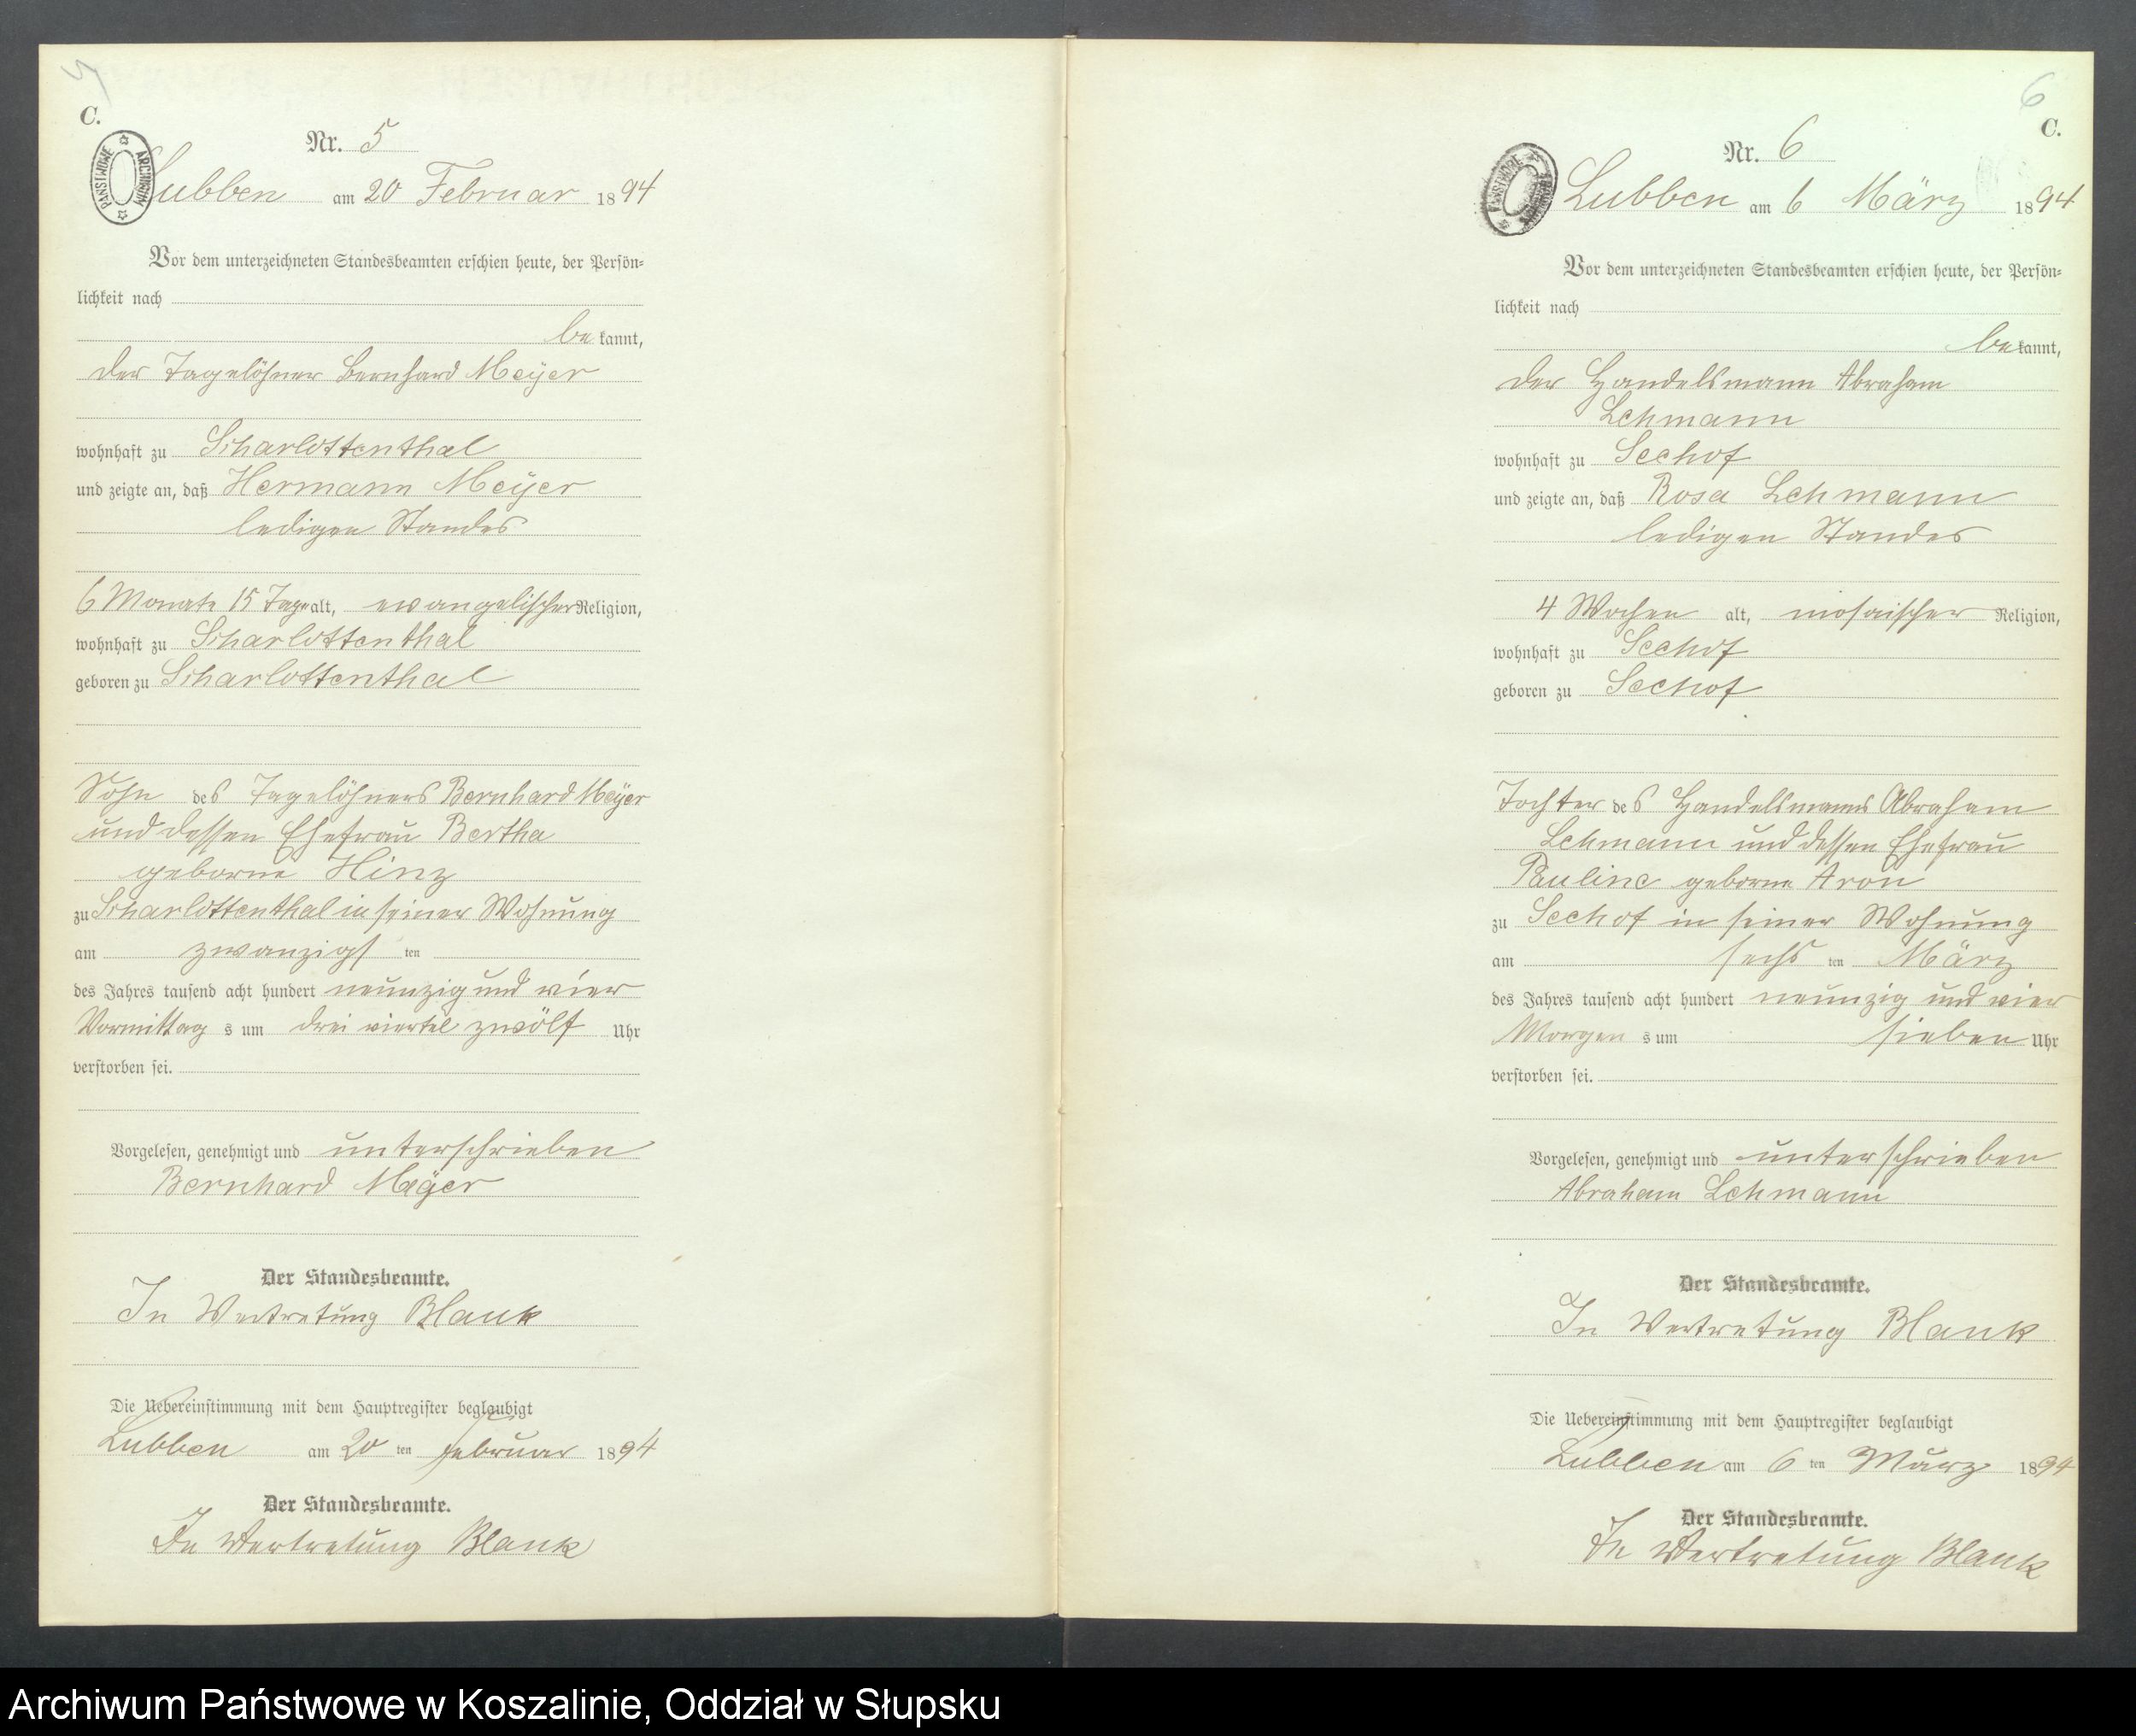 5
C.
PAŃSTWOWE ARCHIWUM
Nr. 5
Lubben am 20 Februar 1894
Vor dem unterzeichneten Standesbeamten erschien heute, der Persön-
lichkeit nach
be kannt,
der Tagelöhner Bernhard Meyer
wohnhaft zu Scharlottenthal
und zeigte an, daß Hermann Meyer
ledigen Standes
6 Monate 15 Tage alt, ewangelischer Religion,
wohnhaft zu Scharlottenthal
geboren zu Scharlottenthal
Sohn des Tagelöhners Bernhard Meyer
und dessen Ehefrau Bertha
geborne Hinz
zu Scharlottenthal in seiner Wohnung
am zwanzigs ten
des Jahres tausend acht hundert neunzig und vier
Vormittag s um drei viertel zwölf Uhr
verstorben sei.
Vorgelesen, genehmigt und unterschrieben
Bernhard Meyer
Der Standesbeamte.
In Vertretung Blank
Die Uebereinstimmung mit dem Hauptregister beglaubigt
Lubben am 20 ten Februar 1894
Der Standesbeamte.
In Vertretung Blank
6
C.
PAŃSTWOWE ARCHIWUM
Nr. 6
Lubben am 6 März 1894
Vor dem unterzeichneten Standesbeamten erschien heute, der Persön-
lichkeit nach
be kannt,
der Handelsmann Abraham
Lehmann
wohnhaft zu Seehof
und zeigte an, daß Rosa Lehmann
ledigen Standes
4 Wochen alt, mosaischer Religion,
wohnhaft zu Seehof
geboren zu Seehof
Tochter des Handelsmanns Abraham
Lehmann und dessen Ehefrau
Pauline geborne Aron
zu Seehof in seiner Wohnung
am sechs ten März
des Jahres tausend acht hundert neunzig und vier
Morgen s um sieben Uhr
verstorben sei.
Vorgelesen, genehmigt und unterschrieben
Abraham Lehmann
Der Standesbeamte.
In Vertretung Blank
Die Uebereinstimmung mit dem Hauptregister beglaubigt
Lubben am 6 ten März 1894
Der Standesbeamte.
In Vertretung Blank
Archiwum Państwowe w Koszalinie, Oddział w Słupsku